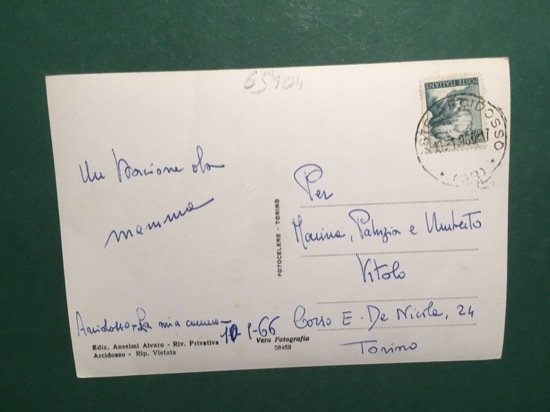 65404
POSTE ITALIANE
ARCIDOSSO
Un bacione da
mamma
Per
Marina, Patrizia e Umberto
Vitolo
Corso E. De Nicola, 24
Torino
Arcidosso - La mia camera -
10-1-66
Ediz. Anselmi Alvaro - Riv. Privativa
Arcidosso - Rip. Vietata
Vera Fotografia
58468
FOTOCELERE - TORINO